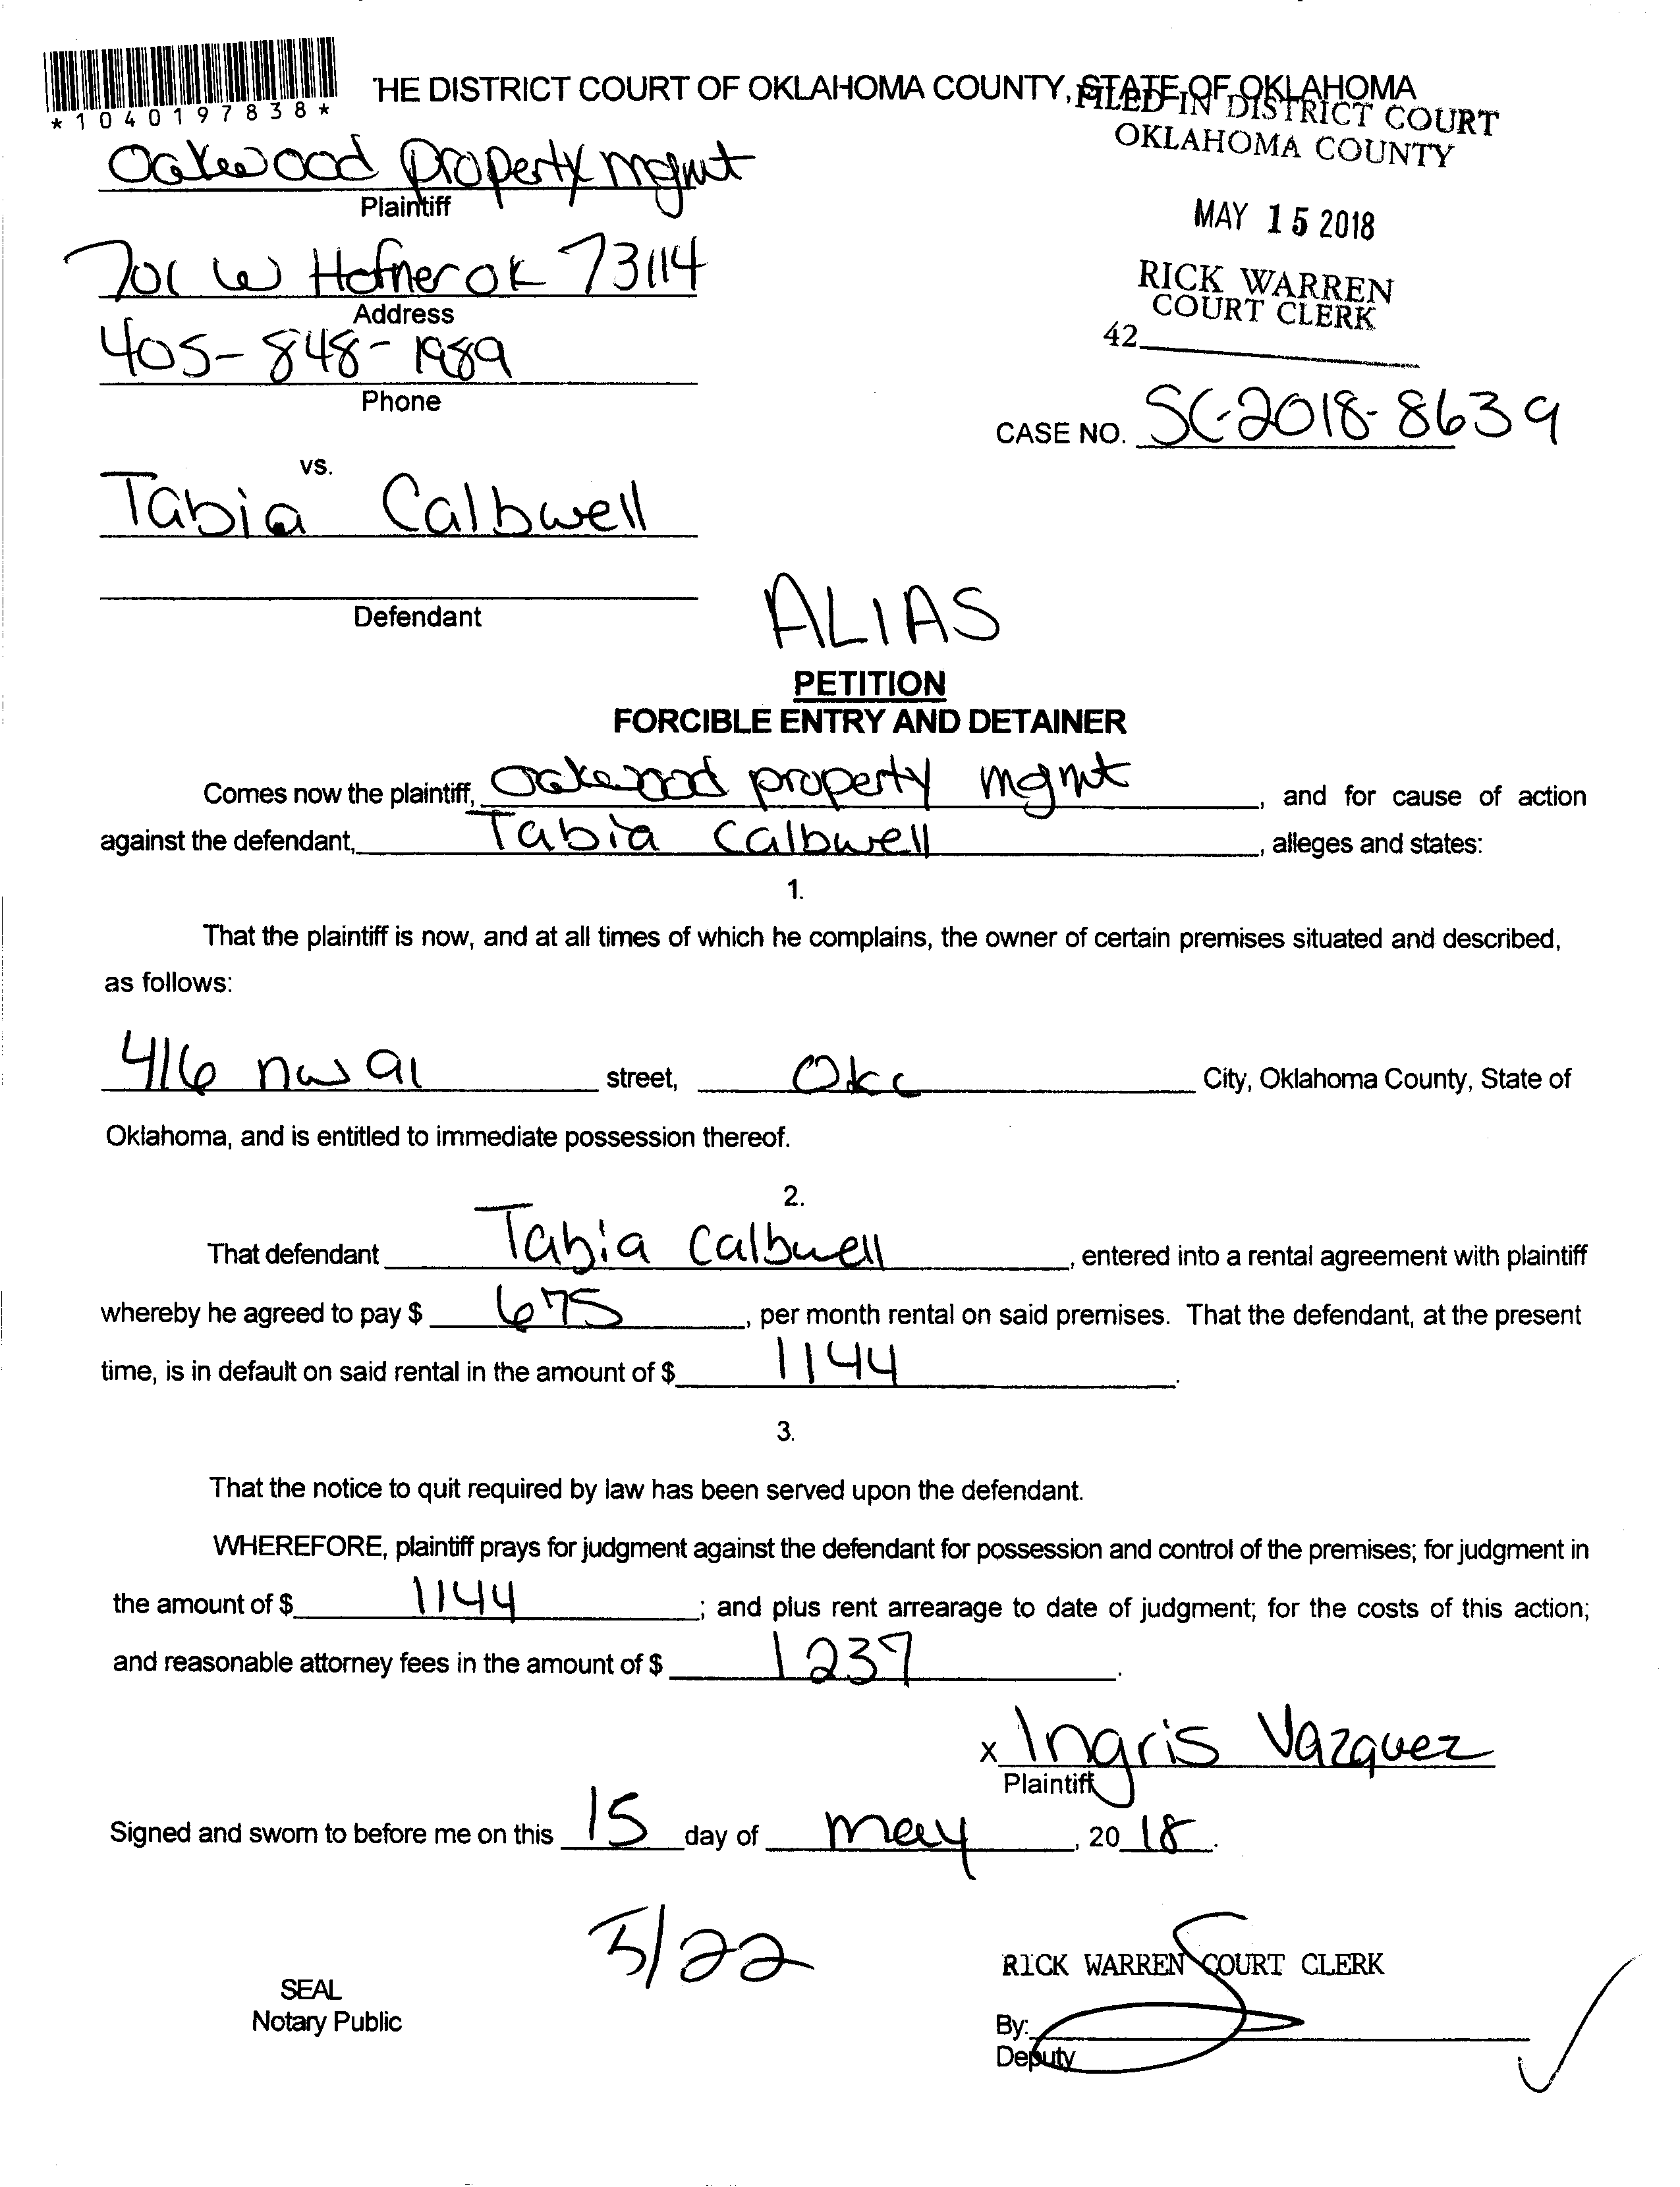 THE DISTRICT COURT OF OKLAHOMA COUNTY, STATE OF OKLAHOMA
*1040197838*
FILED IN DISTRICT COURT
OKLAHOMA COUNTY
MAY 15 2018
RICK WARREN
COURT CLERK
42
Oakwood property mgmt
Plaintiff
701 W Hefner OK 73114
Address
405-848-1989
Phone
CASE NO. SC-2018-8639
vs.
Tabia Calbwell
Defendant
ALIAS
PETITION
FORCIBLE ENTRY AND DETAINER
Comes now the plaintiff, Oakewood property mgmt, and for cause of action
against the defendant, Tabia Calbwell, alleges and states:
1.
That the plaintiff is now, and at all times of which he complains, the owner of certain premises situated and described,
as follows:
416 nw 91 street, Okc City, Oklahoma County, State of
Oklahoma, and is entitled to immediate possession thereof.
2.
That defendant Tabia Calbwell, entered into a rental agreement with plaintiff
whereby he agreed to pay $ 675, per month rental on said premises. That the defendant, at the present
time, is in default on said rental in the amount of $ 1144.
3.
That the notice to quit required by law has been served upon the defendant.
WHEREFORE, plaintiff prays for judgment against the defendant for possession and control of the premises; for judgment in
the amount of $ 1144; and plus rent arrearage to date of judgment; for the costs of this action;
and reasonable attorney fees in the amount of $ 1237.
x Ingris Vazquez
Plaintiff
Signed and sworn to before me on this 15 day of may, 2018.
5/22
RICK WARREN COURT CLERK
SEAL
Notary Public
By:
Deputy